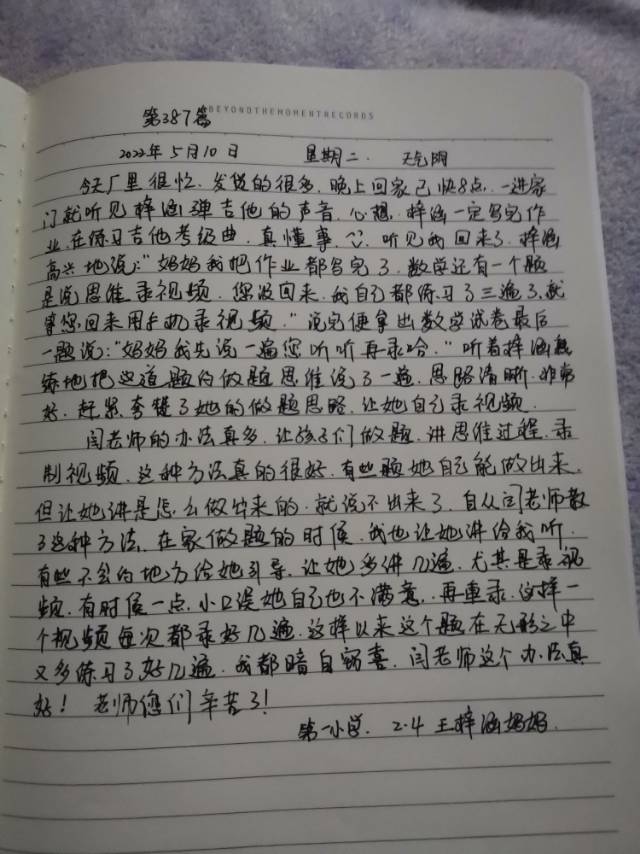 第387篇
BEYONDTHEMOMENTRECORDS
2022年5月10日 星期二. 天气阴
今天厂里很忙、发货的很多,晚上回家已快8点,一进家
门就听见梓涵弹吉他的声音,心想,梓涵一定写完作
业,在练习吉他考级曲,真懂事,听见我回来了,梓涵
高兴地说:“妈妈我把作业都写完了,数学还有一个题
是说思维录视频,您没回来,我自己都练习了三遍了,就
等您回来用手机录视频。”说完便拿出数学试卷最后
一题说:“妈妈我先说一遍您听听再录哈。”听着梓涵熟
练地把这道题的做题思维说了一遍,思路清晰,非常
好,赶紧夸赞了她的做题思路,让她自己录视频.
闫老师的办法真多,让孩子们做题,讲思维过程,录
制视频,这种方法真的很好,有些题她自己能做出来,
但让她讲是怎么做出来的,就说不出来了,自从闫老师教
了这种方法,在家做题的时候,我也让她讲给我听,
有些不会的地方给她引导,让她多讲几遍,尤其是录视
频,有时候一点小口误她自己也不满意,再重录,这样一
个视频每次都录好几遍,这样以来这个题在无形之中
又多练习了好几遍,我都暗自窃喜,闫老师这个办法真
好!老师您们辛苦了!
第一小学. 2.4 王梓涵妈妈.